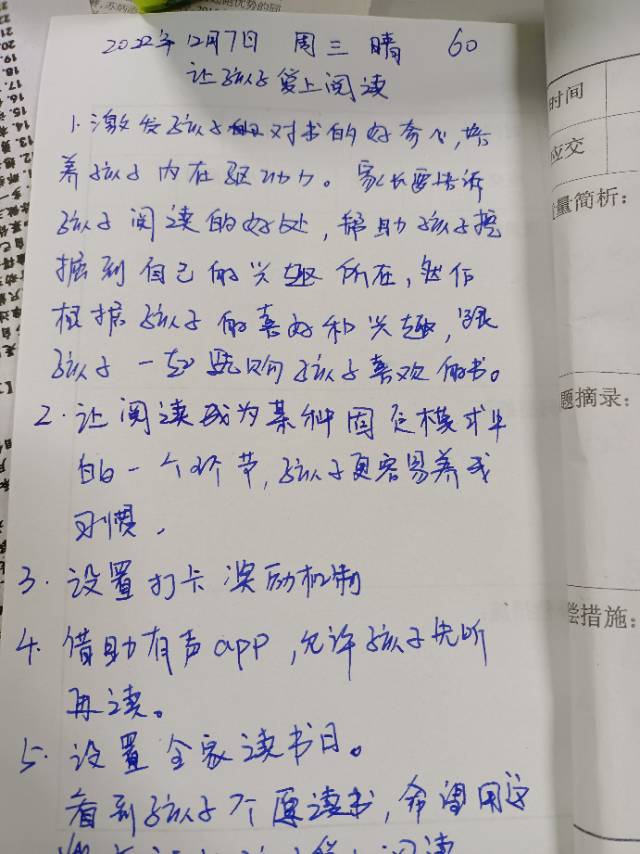 2022年12月7日 周三 晴 60
让孩子爱上阅读
1. 激发孩子对书的好奇心,培
养孩子内在驱动力。家长要告诉
孩子阅读的好处,帮助孩子挖
掘到自己的兴趣所在,然后
根据孩子的喜好和兴趣,跟
孩子一起选购孩子喜欢的书。
2. 让阅读成为某种固定模式中
的一个环节,孩子更容易养成
习惯.
3. 设置打卡奖励机制
4. 借助有声app,允许孩子先听
再读。
5. 设置全家读书日。
看到孩子不愿读书,希望用这
时间
应交
量简析:
题摘录:
偿措施: